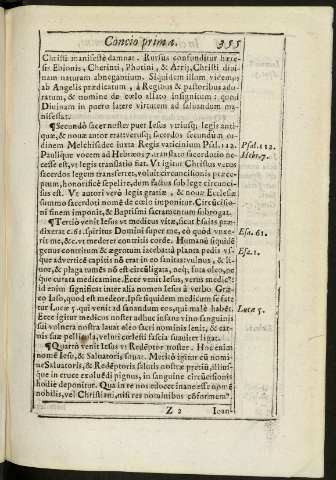 Concio prima. 355
Christi manifestè damnat. Rursus confunditur hære-
sis Ebionis, Cherinti, Photini, & Arrij, Christi divi-
nam naturam abnegantium. Siquidem illum vicemus
ab Angelis prædicatum, à Regibus & pastoribus ado-
ratum, & nomine de cœlo allato insignitum: quod
Divinam in puero latere virtutem ad salvandum ma-
nifestat.
¶Secundò sacer noster puer Iesus utriusq; legis anti-
quæ, & novæ autor evs; sacerdos secundùm or-
dinem Melchisedec iuxta Regis vaticinium Psal. 112.
Paulique vocem ad Hebræos 7. translato sacerdotio ne-
cesse est, ut legis translatio fiat. Vt igitur Christus vetus
sacerdos legem transferret, voluit circumcisionis præce-
ptum, honorificè sepelire, dum factus sub lege circunci-
sus est. Vt autori verò legis gratiæ, & novæ Ecclesiæ
summo sacerdoti nomē de cœlo imponitur. Circūcisio-
ni finem imponit, & Baptismi sacramentum subrogat.
¶Tertiò venit Iesus vt medicus vitæ, sicut Esaias præ-
dixerat c. 61. spiritus Domini super me, eò quòd vnxe-
rit me, &c. vt mederer contritis corde. Humanū siquidē
genus contritum & ægrotum iacebat à planta pedis vs-
que ad verticē capitis nō erat in eo sanitas: vulnus, & li-
vor, & plaga tumēs nō est circūligata, neq; fota oleo, ne-
que curata medicamine. Ecce venit Iesus, verus medic9:
id enim significat inter alia nomen Iesus à verbo Græ-
co Iaso, quod est medeor. Ipse siquidem medicum se fate
tur Lucæ 5. qui venit ad sanandum eos, qui malè habēt.
Ecce igitur medicus noster adhuc infans vino sanguinis
sui vulnera nostra lavat oleo sacri nominis lenit, & car-
nis suæ pellicula, veluti cœlesti fascia suaviter ligat.
¶Quartò venit Iesus vt Redēptor noster. Hoc enim
nomē Iesu, & Salvatoris sonat. Meritò igitur cū nomi-
ne Salvatoris, & Redēptoris salutis nostræ pretiū, illum-
que in cruce exolvēdi pignus, in sanguine circūcisionis
hodiè deponitur. Qua in re nos edocet inane esse nomē
nobilis, vel Christiani, nisi res nominibus cōformem9.
Z 2 Ioan-
Psal. 112.
Hebr. 7.
Esa. 61.
Esa. 1.
Lucæ 5.